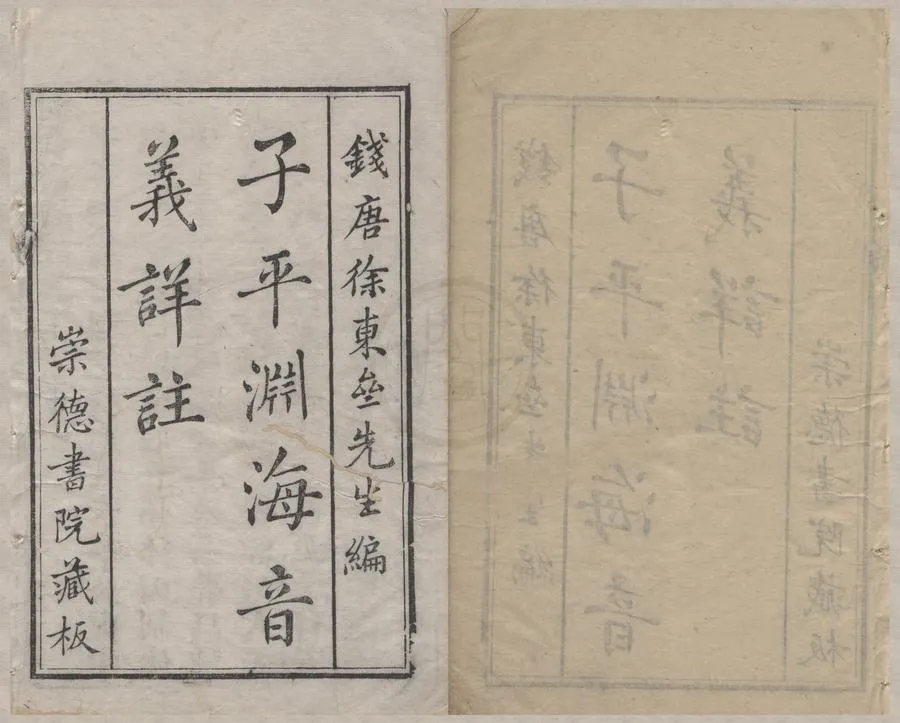 錢唐徐東壘先生編
子平淵海音
義詳註
崇德書院藏板